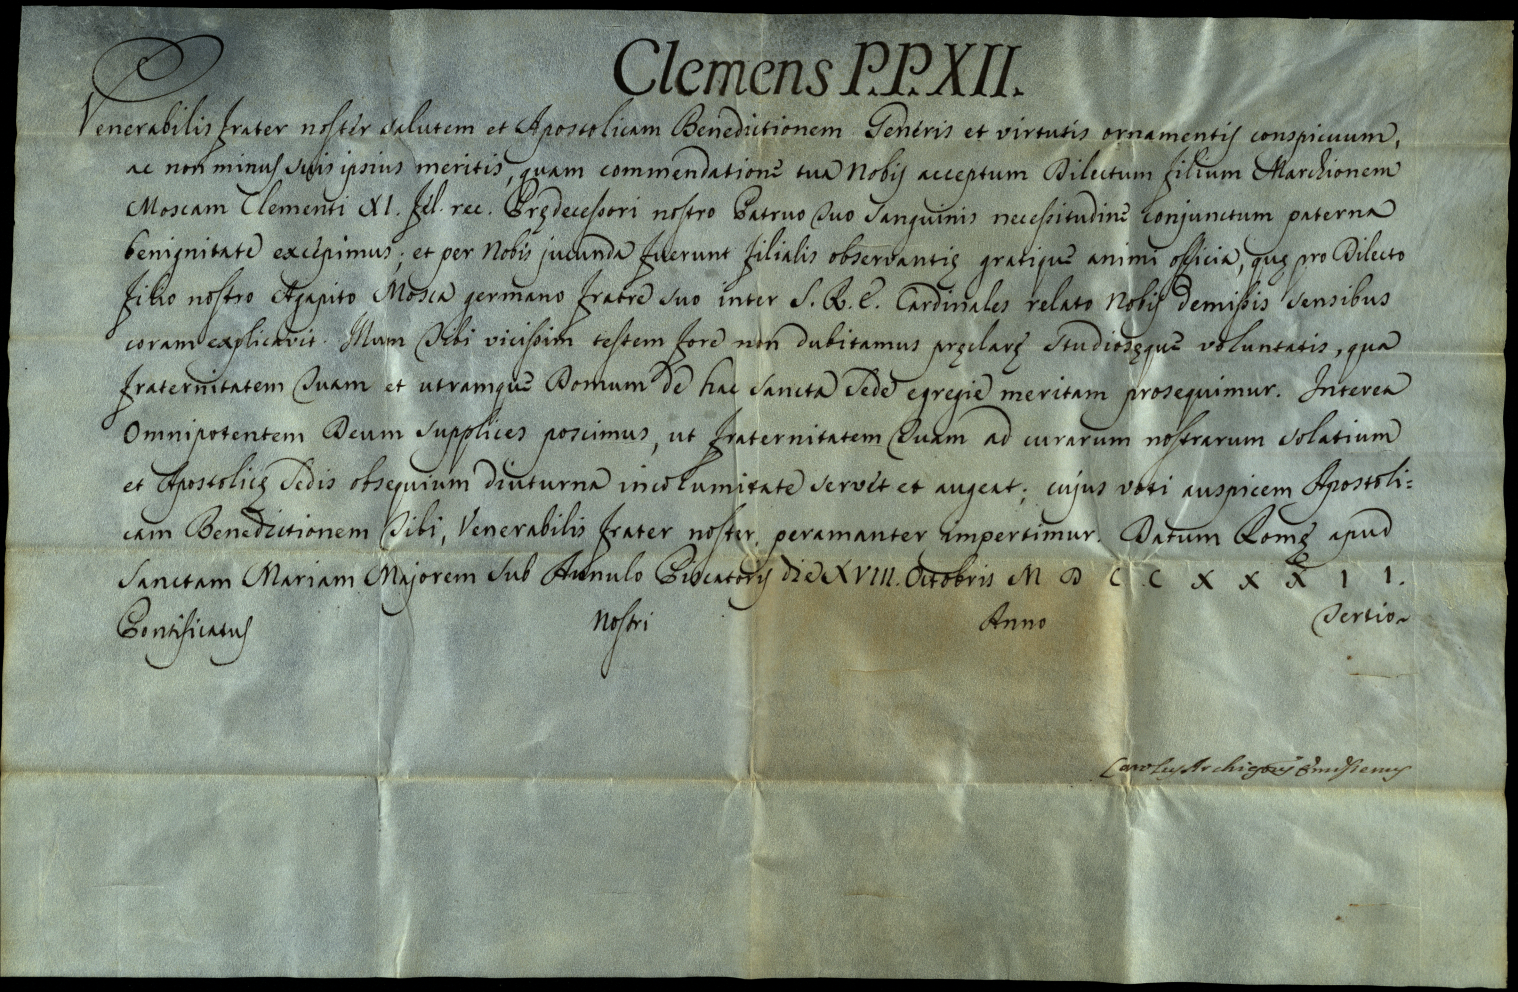 Clemens P.P. XII.
Venerabilis frater noster salutem et Apostolicam Benedictionem Generis et virtutis ornamentis conspicuum,
ac non minus suis ipsius meritis, quam commendatione tua Nobis acceptum Dilectum filium Marchionem
Moscam Clementi XI. fel. rec. Prędecessori nostro Patruo suo sanguinis necessitudine conjunctum paterna
benignitate excepimus; et per Nobis jucunda fuerunt filialis observantię gratique animi officia, quę pro Dilecto
filio nostro Agapito Mosca germano fratre suo inter S. R. E. Cardinales relato Nobis demissis sensibus
coram explicavit. Illum Tibi vicissim testem fore non dubitamus pręclarę studiosęque voluntatis, qua
fraternitatem Tuam et utramque Domum de hac Sancta Sede egregie meritam prosequimur. Interea
Omnipotentem Deum supplices poscimus, ut fraternitatem Tuam ad curarum nostrarum solatium
et Apostolicę Sedis obsequium diuturna incolumitate servet et augeat; cujus voti auspicem Apostoli=
cam Benedictionem Tibi, Venerabilis frater noster, peramanter impertimur. Datum Romę apud
Sanctam Mariam Majorem sub Annulo Piscatoris die XVIII. Octobris M D C C X X X I I.
Pontificatus nostri Anno Tertio
Carolus Archiepus Emissenus